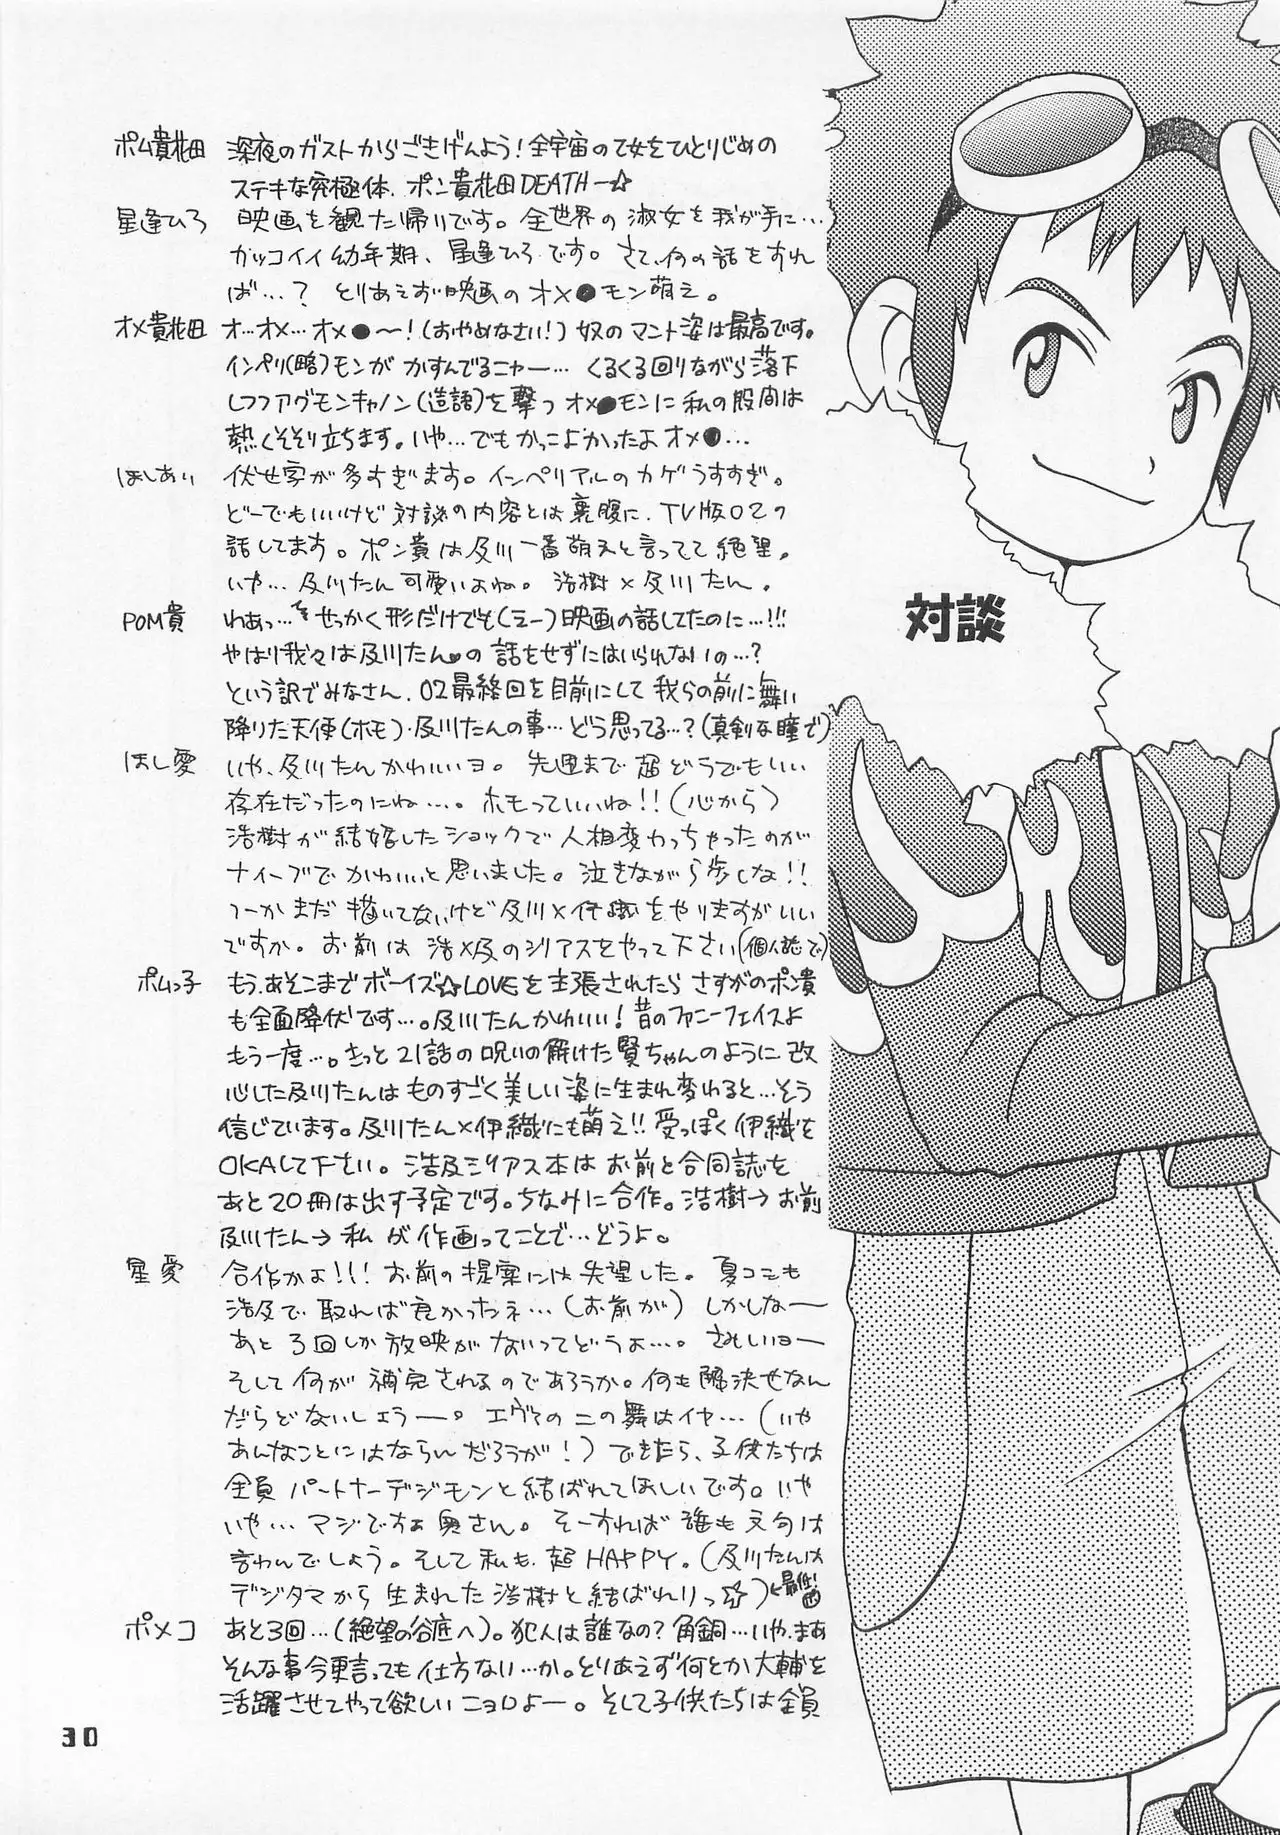 対談
ポム貴花田 深夜のガストからごきげんよう!全宇宙の乙女をひとりじめの
ステキな究極体、ポン貴花田DEATHー☆
星逢ひろ 映画を観た帰りです。全世界の淑女を我が手に…
カッコイイ幼年期、星逢ひろです。さて、何の話をすれ
ば…? とりあえず映画のオメ●モン萌え。
オメ貴花田 オ…オメ…オメ●〜!(おやめなさい!)奴のマント姿は最高です。
インペリ(略)モンがかすんでるニャー… くるくる回りながら落下
しつつアヴモンキャノン(造語)を撃つオメ●モンに私の股間は
熱くそそり立ちます。いや…でもかっこよかったよオメ●…
ほしあい 伏せ字が多すぎます。インペリアルのカゲうすすぎ。
どーでもいいけど対談の内容とは裏腹に、TV版02の
話してます。ポン貴は及川一番萌えと言ってて絶望。
いや…及川たん可愛いよね。浩樹×及川たん。
POM貴 わあっ…せっかく形だけでも(えー)映画の話してたのに…!!!
やはり我々は及川たん♥の話をせずにはいられないの…?
という訳でみなさん、02最終回を目前にして我らの前に舞い
降りた天使(ホモ)・及川たんの事…どう思ってる…?(真剣な瞳で)
ほし愛 いや、及川たんかわいいヨ。先週まで超どうでもいい
存在だったのにね…。ホモっていいね!!(心から)
浩樹が結婚したショックで人相変わっちゃったのが
ナイーブでかわいいと思いました。泣きながら歩くしな!!
つーかまだ描いてないけど及川×伊織をやりますがいい
ですか。お前は浩×及のシリアスをやって下さい(個人誌で)
ポムっ子 もう、あそこまでボーイズ☆LOVEを主張されたらさすがのポン貴
も全面降伏です…。及川たんかわいい!昔のファニーフェイスよ
もう一度…。きっと21話の呪いの解けた賢ちゃんのように改
心した及川たんはものすごく美しい姿に生まれ変わると…そう
信じています。及川たん×伊織にも萌え!!受っぽく伊織を
OKAして下さい。浩及シリアス本はお前と合同誌を
あと20冊は出す予定です。ちなみに合作。浩樹→お前
及川たん→私が作画ってことで…どうよ。
星愛 合作かよ!!! お前の提案には失望した。夏コミも
浩及で取れば良かったネ…(お前が)しかしなー
あと3回しか放映がないってどうよ…。さみしいヨー
そして何が補完されるのであろうか。何も解決せなん
だらどないしょうー。エヴァの二の舞はイヤ…(いや
あんなことにはならんだろうが!)できたら、子供たちは
全員パートナーデジモンと結ばれてほしいです。いや
いや…マジですぁ奥さん。そーすれば誰も文句は
言わんでしょう。そして私も超HAPPY。(及川たんは
デジタマから生まれた浩樹と結ばれりっ☆)
ポメコ あと3回…(絶望の谷底へ)。犯人は誰なの?角銅…いや、まあ
そんな事今更言っても仕方ない…か。とりあえず何とか大輔を
活躍させてやって欲しいニョロよー。そして子供たちは全員
30